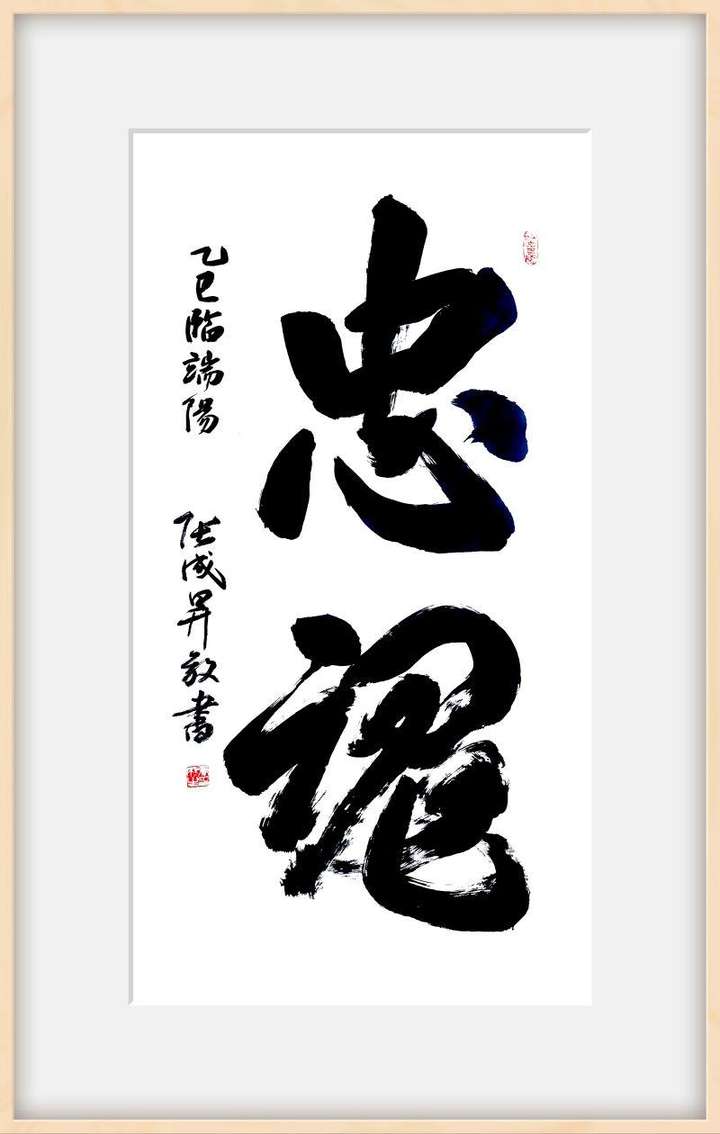 忠魂
乙巳臨端陽
張成昇敬書